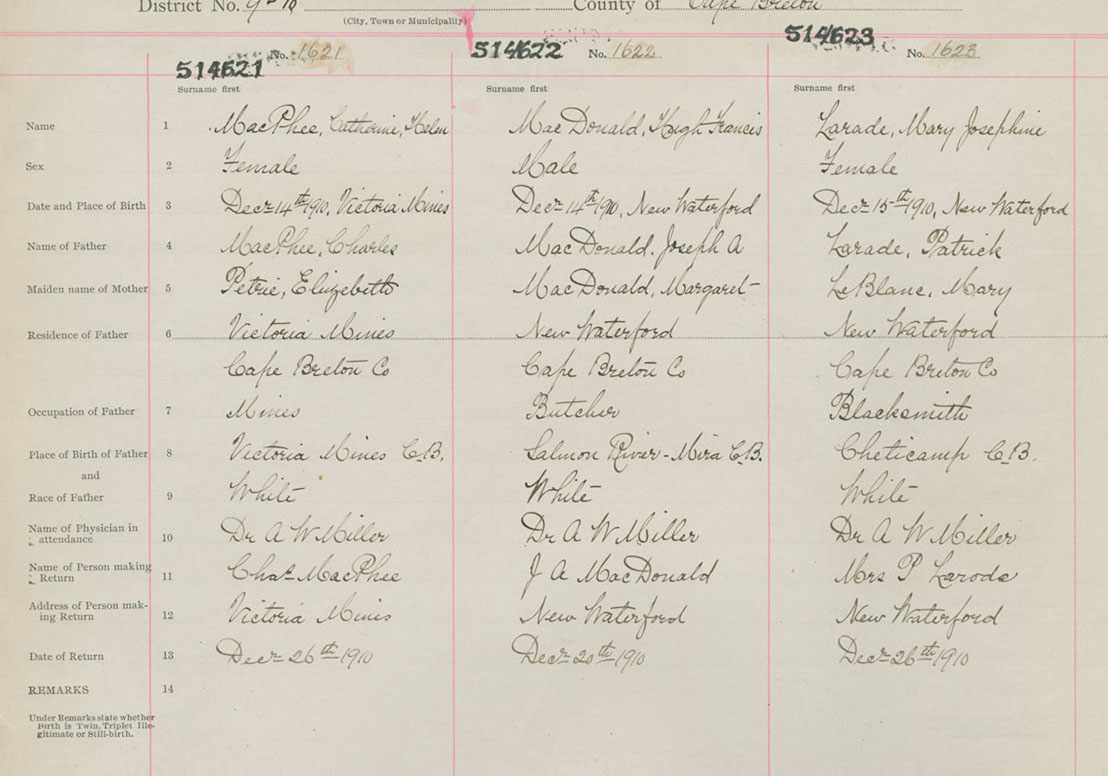 District No. 9-10 County of Cape Breton
(City, Town or Municipality)
514621 No. 1621 514622 No. 1622 514623 No. 1623
Surname first Surname first Surname first
Name 1 MacPhee, Catherine, Helen MacDonald, Hugh Francis Larade, Mary Josephine
Sex 2 Female Male Female
Date and Place of Birth 3 Decr 14th 1910, Victoria Mines Decr 14th 1910, New Waterford Decr 15th 1910, New Waterford
Name of Father 4 MacPhee, Charles MacDonald, Joseph A Larade, Patrick
Maiden name of Mother 5 Petrie, Elizebeth MacDonald, Margaret LeBlanc, Mary
Residence of Father 6 Victoria Mines New Waterford New Waterford
Cape Breton Co Cape Breton Co Cape Breton Co
Occupation of Father 7 Butcher Blacksmith
Place of Birth of Father 8 Victoria Mines C.B. Salmon River - Mira C.B. Cheticamp C.B.
and
Race of Father 9 White White White
Name of Physician in
attendance 10 Dr A W Miller Dr A W Miller Dr A W Miller
Name of Person making
Return 11 Chas MacPhee J A MacDonald Mrs P Larade
Address of Person mak-
ing Return 12 Victoria Mines New Waterford New Waterford
Date of Return 13 Decr 26th 1910 Decr 20th 1910 Decr 26th 1910
REMARKS 14
Under Remarks state whether
Birth is Twin, Triplet Ille-
gitimate or Still-birth.